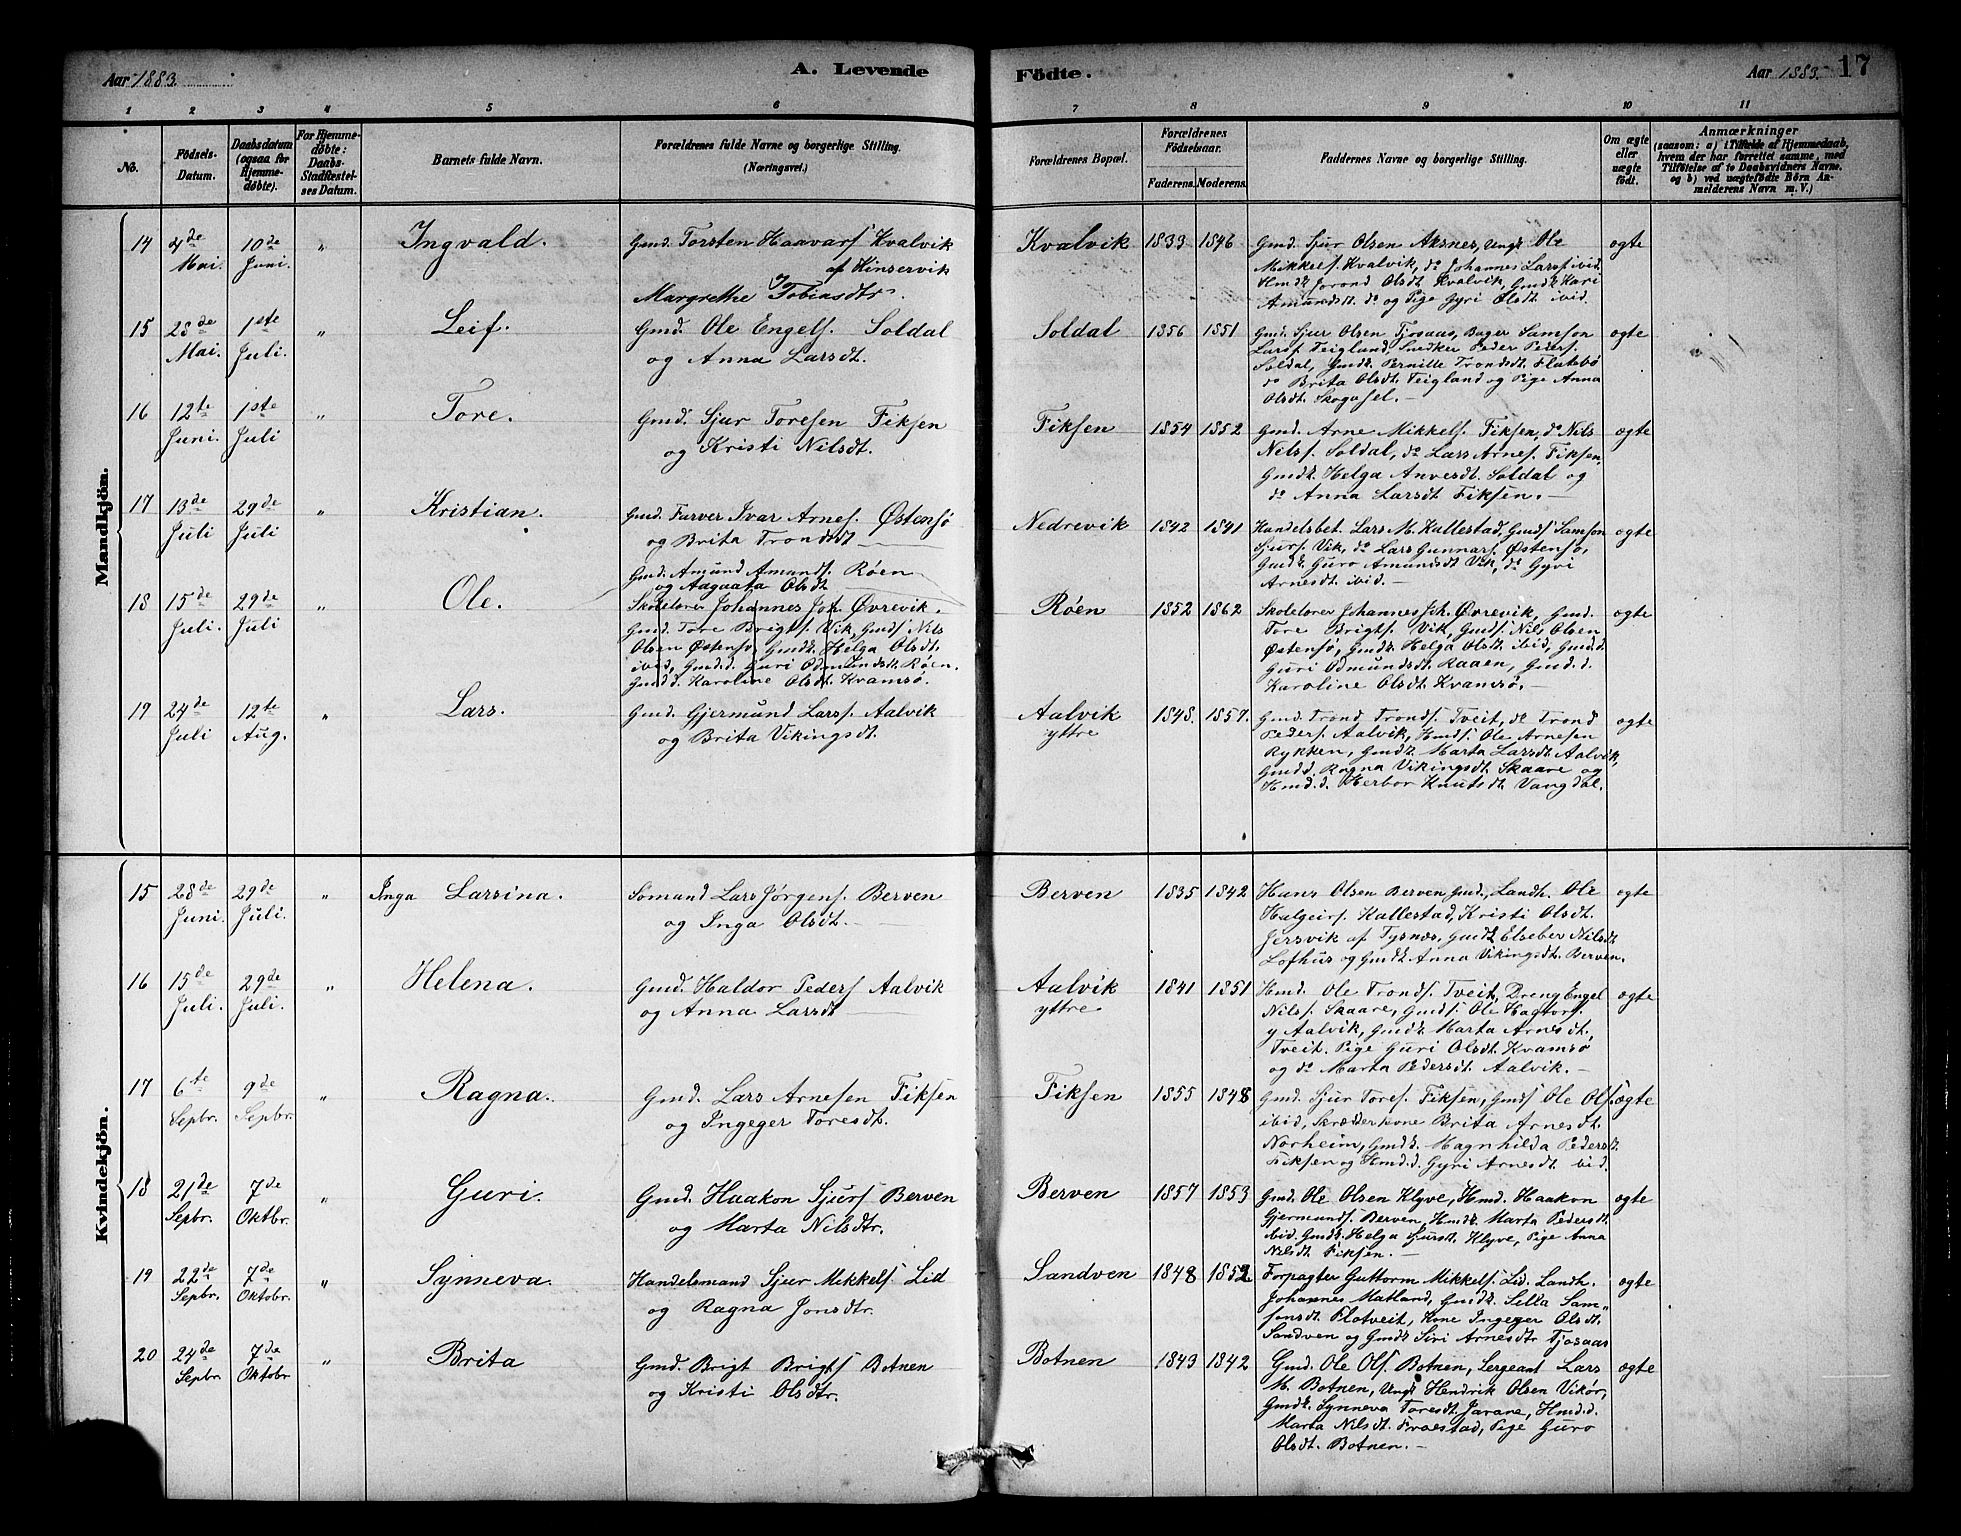 Aar 1883.
A. Levende
Födte.
Aar 1883.
17
1 2 3 4 5 6 7 8 9 10 11
No.
Födsels-Datum.
Daabsdatum (ogsaa for Hjemmedöbte).
For Hjemmedöbte: Daabs-Stadfæstelses Datum.
Barnets fulde Navn.
Forældrenes fulde Navne og borgerlige Stilling. (Næringsvei.)
Forældrenes Bopæl.
Forældrenes Födselsaar.
Faderens. Moderens.
Faddernes Navne og borgerlige Stilling.
Om ægte eller uægte födt.
Anmærkninger
(saasom: a) i Tilfælde af Hjemmedaab, hvem der har forrettet samme, med Tilföielse af to Daabsvidners Navne, og b) ved uægtefödte Börn Anmelderens Navn m. V.)
Mandkjön.
14 4de Mai. 10de Juni. " Ingvald.
Gmd. Torsten Haavars. Kvalvik
af Kinservik
Margrethe Tobiasdtr.
Kvalvik 1833 1846
Gmd. Sjur Olsen Aksnes, Ungk. Ole
Mikkels. Kvalvik, do Johannes Larss. ibid.
Hmdk Jorond Olsdt Kvalvik, Gmdk Kari
Amundsdt. do og Pige Gyri Olsdt ibid.
ægte
15 28de Mai. 1ste Juli. " Leif.
Gmd. Ole Engels. Soldal
og Anna Larsdt.
Soldal 1856 1851
Gmd. Sjur Olsen Tjosaas, Bager Samson
Larss. Teigland, Snedker Peder Peders.
Soldal, Gmdk. Pernille Trondsdt. Flatebø
do Brita Olsdt. Teigland og Pige Anna
Olsdt. Skogasel. —
ægte
16 12te Juni. 1ste Juli " Tore.
Gmd. Sjur Toresen Fiksen
og Kristi Nilsdt.
Fiksen 1854 1852
Gmd. Arne Mikkels. Fiksen, do Nils
Nilss. Soldal, do Lars Arnes. Fiksen,
Gmdk. Helga Anvesdt. Soldal og
do Anna Larsdt Fiksen. —
ægte
17 13de Juli 29de Juli " Kristian.
Gmd. Farver Ivar Arnes. Østensø
og Brita Trondsdt
Nedrevik 1842 1841
Handelsbet. Lars M. Kallestad, Gmds. Samson
Sjurs. Vik, do Lars Gunnars. Østensø,
Gmdk Guro Amundsdt Vik, do Gyri
Arnesdt. ibid. —
ægte
18 15de Juli. 29de Juli " Ole.
Gmd. Amund Amunds. Røen
og Aagaata Olsdt
Skolelærer Johannes Joh. Øvrevik.
Gmd. Tore Brigts. Vik, Gmds. Nils
Olsen Østensø, Gmdk. Helga Olsdt.
ibid, Gmd.d. Guri Odmundsdt. Røen.
Gmd.d. Karoline Olsdt Kvamsø.
Røen 1852 1862
Skolelærer Johannes Joh. Øvrevik, Gmd.
Tore Brigts. Vik, Gmds. Nils Olsen
Østensø, Gmdk. Helga Olsdt ibid, Gmd.d.
Guri Odmundsdt. Raaen, Gmd.d.
Karoline Olsdt Kvamsø. —
ægte
19 24de Juli 12te Aug. " Lars.
Gmd. Gjermund Larss. Aalvik
og Brita Vikingsdt.
Aalvik
yttre
1848. 1857.
Gmd. Trond Tronds. Tveit, do Trond
Peders. Aalvik, Hmds. Ole Arnesen
Rykken, Gmdk. Marta Larsdt Aalvik,
Gmdd. Ragna Vikingsdt. Skaare og
Hmd.d. Herbor Knutsdt Vangdal.
ægte
Kvindekjön.
15 28de Juni. 29de Juli. " Inga Larsina.
Sømand Lars Jørgens. Berven
og Inga Olsdt. —
Berven 1835 1842
Hans Olsen Berven Gmd., Landh. Ole
Halgeirs. Kallestad, Kristi Olsdt.
Jersvik af Tysnæs, Gmdk Elseber Nilsdt
Lofhus og Gmdk Anna Vikingsdt. Berven.
ægte
16 15de Juli. 29de Juli. " Helena.
Gmd. Haldor Peders Aalvik
og Anna Larsdt
Aalvik
yttre
1841 1851
Hmd. Ole Tronds. Tveit, Dreng Engel
Nilss. Skaare, Gmds. Ole Hagtors.
y Aalvik, Gmdk. Marta Arnesdt.
Tveit. Pige Guri Olsdt. Kvamsø
og do Marta Pedersdt Aalvik. —
ægte
17 6te Septbr. 9de Septbr. " Ragna.
Gmd. Lars Arnesen Fiksen
og Ingeger Toresdt.
Fiksen 1855 1848
Gmd. Sjur Tores. Fiksen, Gmds Ole Ols.
ibid, Skrædderkone Brita Arnesdt.
Norheim, Gmdk. Magnhilda Pedersdt
Fiksen og Hmd.d. Gyri Arnesdt ibid.
ægte
18 21de Septbr. 7de Oktbr. " Guri.
Gmd. Haakon Sjurs Berven
og Marta Nilsdtr.
Berven 1857 1853
Gmd. Ole Olsen Klyve, Hmd. Haakon
Gjermunds. Berven, Hmdk. Marta Pedersdt.
ibid. Gmdk. Helga Sjursdt. Klyve, Pige Anna
Nilsdt Fiksen. —
ægte
19 22de Septbr. 7de Oktobr. " Synneva.
Handelsmand Sjur Mikkels Lid
og Ragna Jonsdtr.
Sandven 1848 1852
Forpagter Guttorm Mikkels. Lid. Landh.
Johannes Matland, Gmdk. Silla Sam-
sonsdt Flotveit, Kone Ingeger Olsdt.
Sandven og Gmdk Siri Arnesdtr Tjosaas
ægte
20 24de Septbr. 7de Oktobr " Brita
Gmd. Brigt Brigts Botnen
og Kristi Olsdtr.
Botnen 1843 1842
Gmd. Ole Ols. Botnen, Sergeant Lars
M. Botnen, Ungk Hendrik Olsen Vikør,
Gmdk. Synneva Toresdt. Jarane, Hmd.d.
Marta Nilsdt. Fraestad, Pige Guro
Olsdt. Botnen. —
ægte